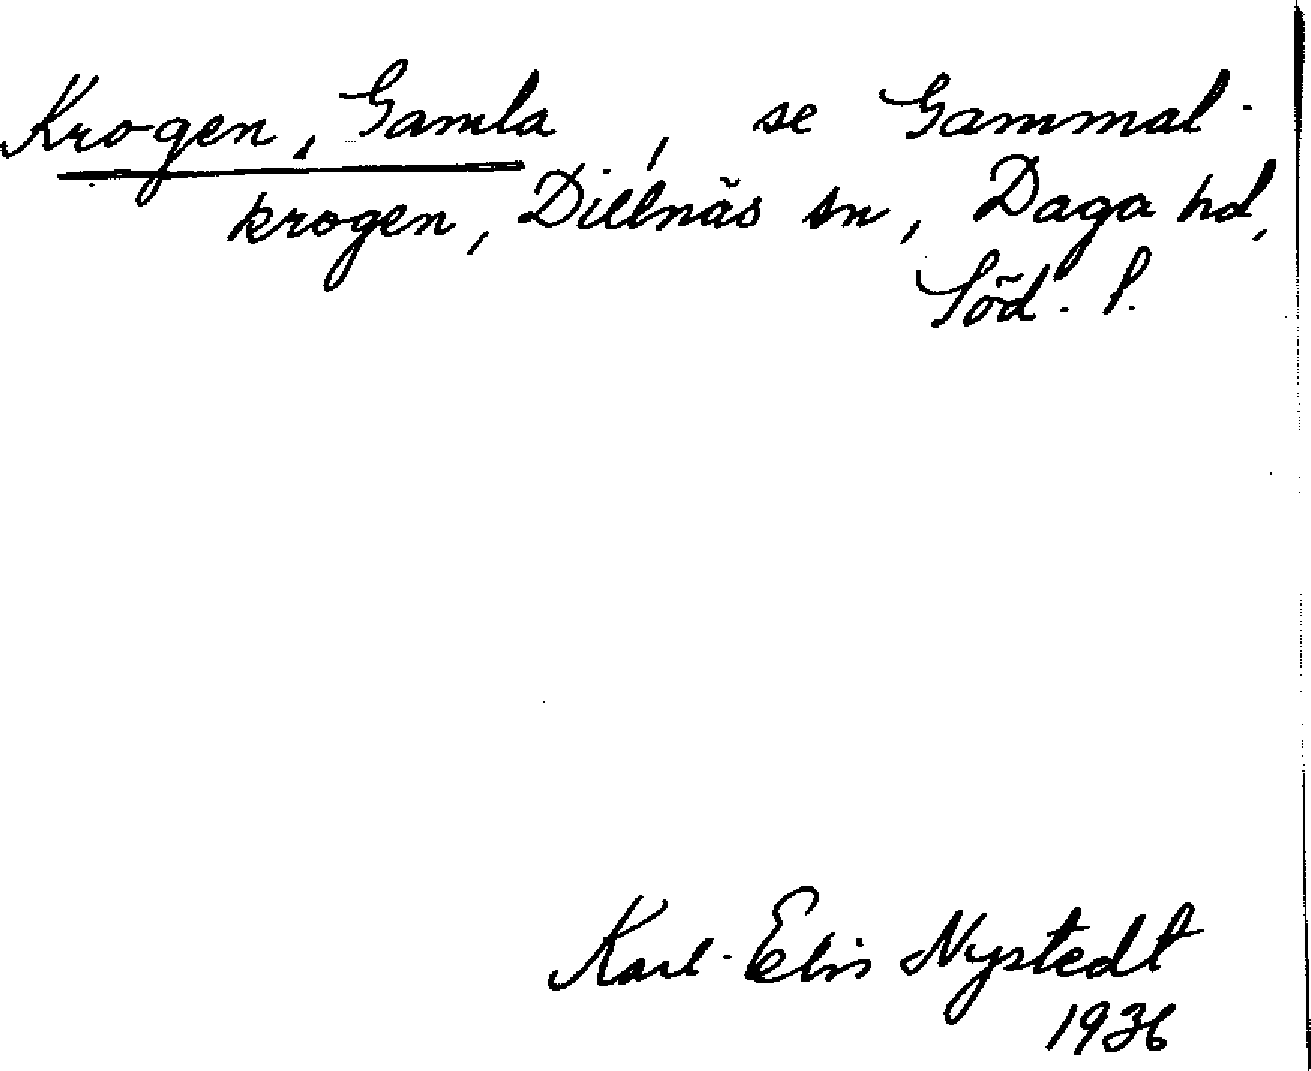 Krogen, Gamla, se Gammal-
krogen, Dillnäs sn, Daga hd,
Söd. l.
Karl-Elis Nystedt
1936